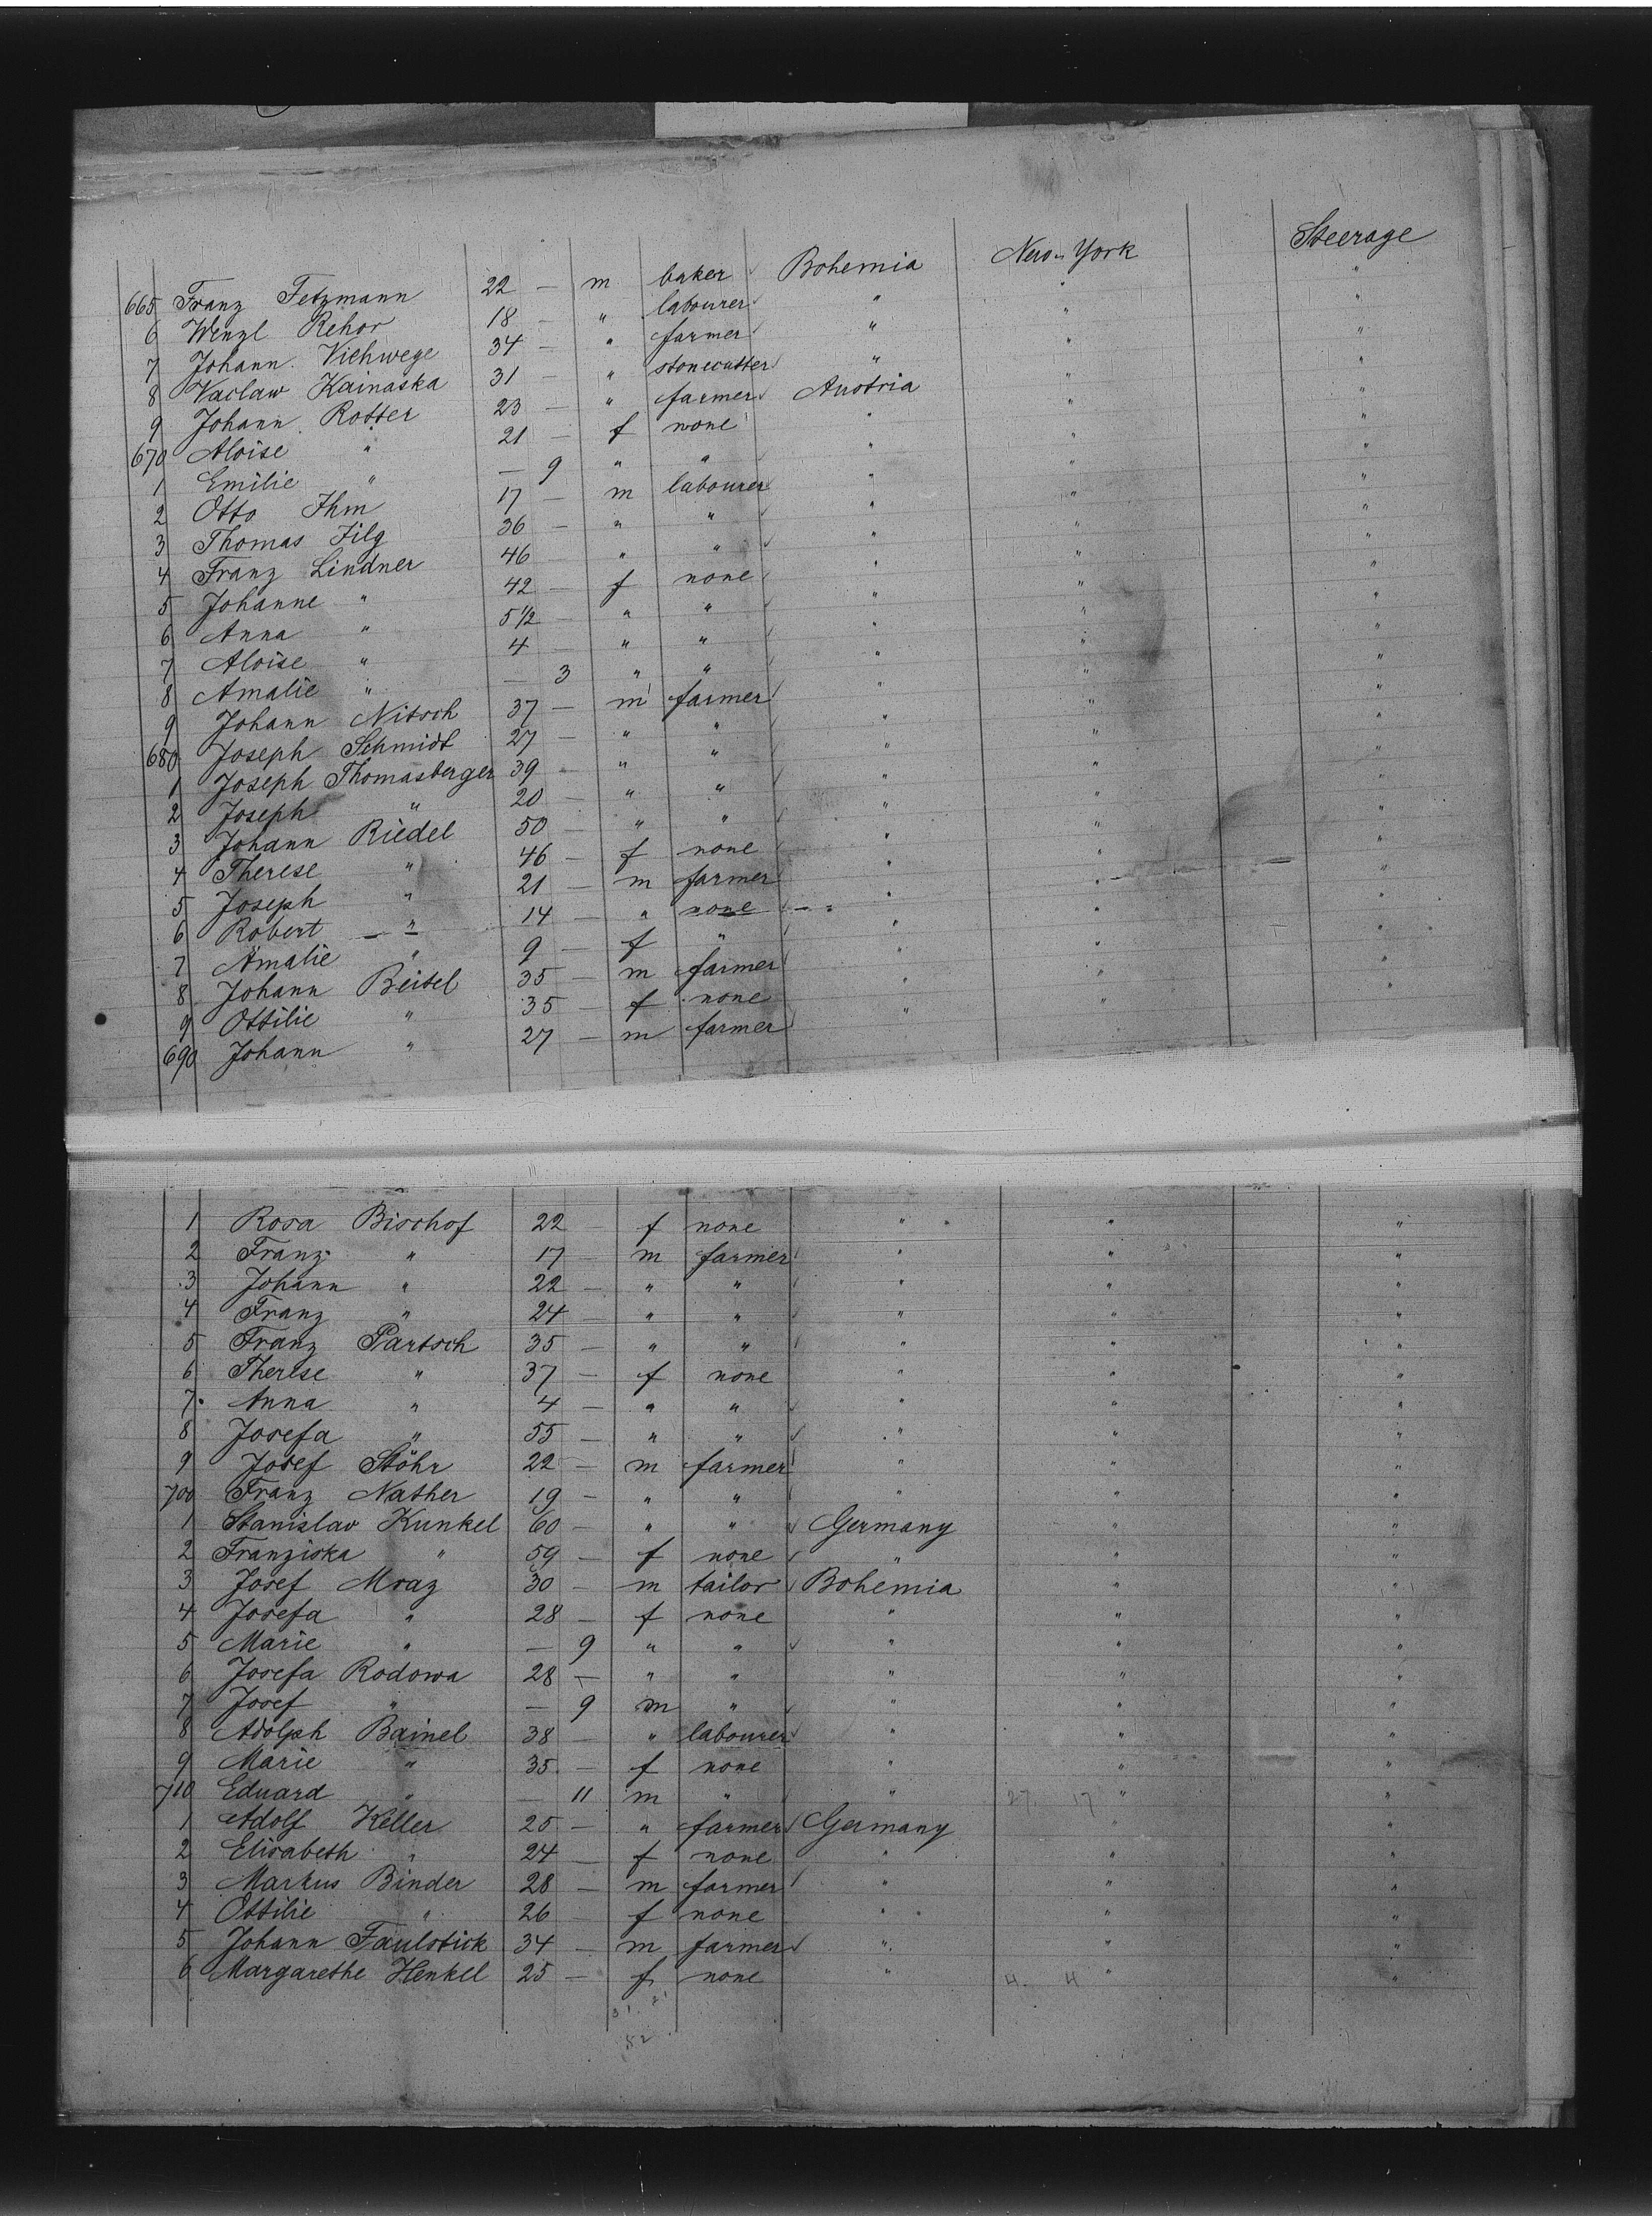 665 Franz Fetzmann 22 — m baker Bohemia New-York Steerage
6 Wenzl Rehor 18 — " labourer " " "
7 Johann Viehwege 34 — " farmer " " "
8 Vaclaw Kainaska 31 — " stonecutter " " "
9 Johann Rotter 23 — " farmer Austria " "
670 Aloise " 21 — f none " " "
1 Emilie " — 9 " " " " "
2 Otto Ihm 17 — m labourer " " "
3 Thomas Filg 36 — " " " " "
4 Franz Lindner 46 " " " " "
5 Johanne " 42 — f none " " "
6 Anna " 5 1/2 — " " " " "
7 Aloise " 4 " " " " "
8 Amalie " — 3 " " " " "
9 Johann Nitsch 37 — m farmer " " "
680 Joseph Schmidt 27 — " " " " "
1 Joseph Thomasberger 39 — " " " " "
2 Joseph " 20 — " " " " "
3 Johann Riedel 50 — " " " " "
4 Therese " 46 — f none " " "
5 Joseph " 21 — m farmer " " "
6 Robert " 14 — " none " " "
7 Amalie " 9 — f " " " "
8 Johann Beitel 35 — m farmer " " "
9 Ottilie " 35 — f none " " "
690 Johann " 27 — m farmer " " "
1 Rosa Bischof 22 — f none " " "
2 Franz " 17 — m farmer " " "
3 Johann " 22 — " " " " "
4 Franz " 24 — " " " " "
5 Franz Partsch 35 — " " " " "
6 Therese " 37 — f none " " "
7 Anna " 4 — " " " " "
8 Josefa " 55 — " " " " "
9 Josef Stöhr 22 — m farmer " " "
700 Franz Nather 19 — " " " " "
1 Stanislav Kunkel 60 — " " Germany " "
2 Franziska " 59 — f none " " "
3 Josef Mraz 30 — m tailor Bohemia " "
4 Josefa " 28 — f none " " "
5 Marie " — 9 " " " " "
6 Josefa Rodowa 28 — " " " " "
7 Josef " — 9 m " " " "
8 Adolph Bainel 38 — " labourer " " "
9 Marie " 35 — f none " " "
710 Eduard " — 11 m " " 27. 17 " "
1 Adolf Keller 25 — " farmer Germany " "
2 Elisabeth " 24 — f none " " "
3 Markus Binder 28 — m farmer " " "
4 Ottilie " 26 f none " " "
5 Johann Faulstick 34 — m farmer " " "
6 Margarethe Henkel 25 — f none " 4. 4 " "
31. 21
52